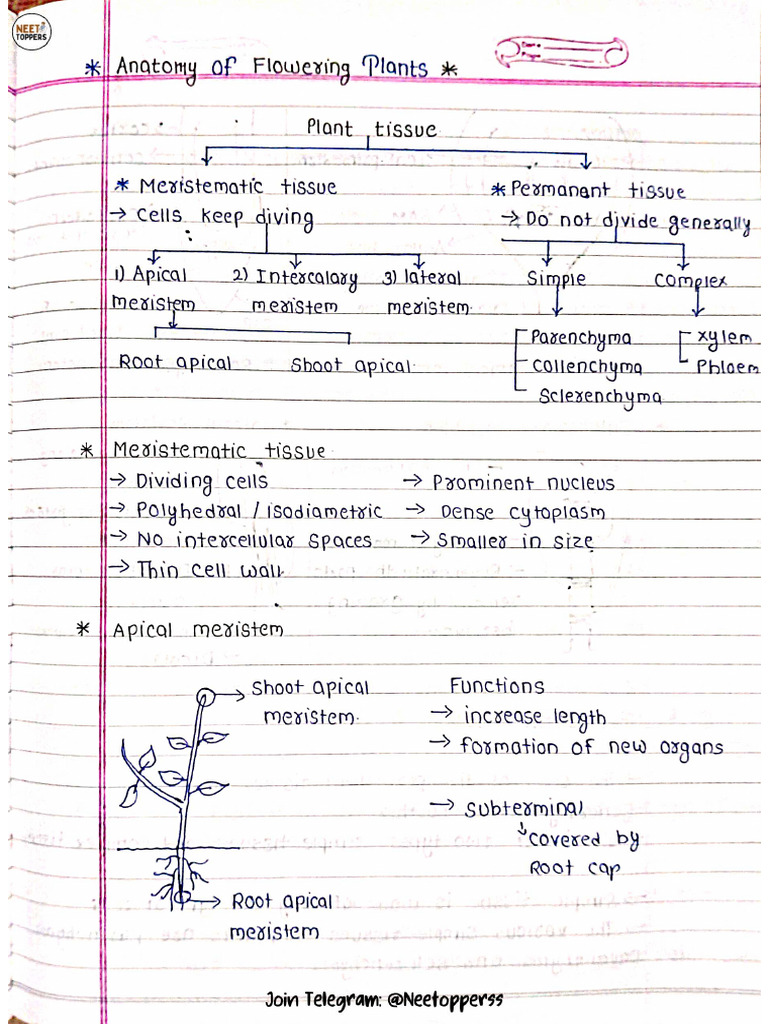 NEET
TOPPERS
* Anatomy of Flowering Plants *
Plant tissue
* Meristematic tissue
* Permanant tissue
→ Cells keep diving
→ Do not divide generally
1) Apical meristem
2) Intercalary meristem
3) lateral meristem
Simple
Complex
Root apical
Shoot apical
Parenchyma
Collenchyma
Sclerenchyma
Xylem
Phloem
* Meristematic tissue
→ Dividing cells
→ Prominent nucleus
→ Polyhedral / isodiametric
→ Dense cytoplasm
→ No intercellular spaces
→ Smaller in size
→ Thin cell wall
* Apical meristem
→ Shoot apical
meristem
Functions
→ increase length
→ formation of new organs
→ Subterminal
↳ covered by
Root cap
→ Root apical
meristem
Join Telegram: @Neetopperss